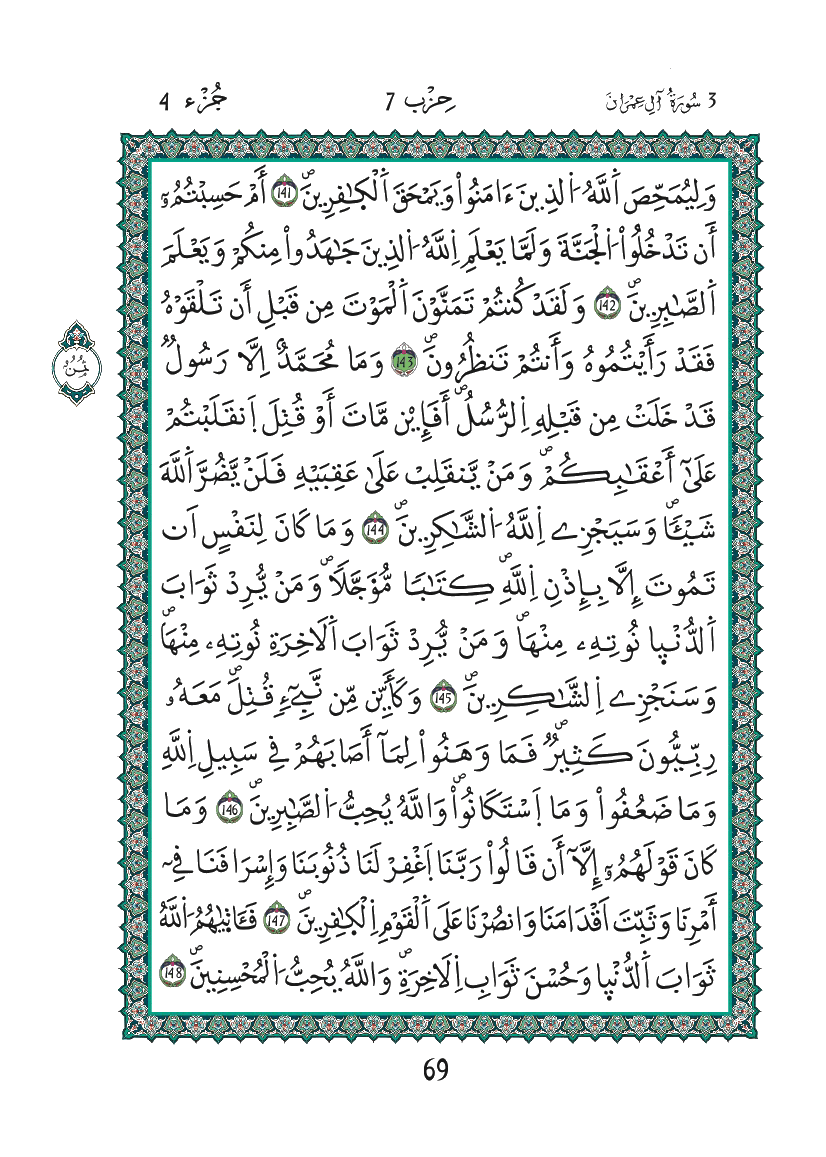 3 سُورَةُ ءَالِ عِمْرَانَ حِزْب 7 جُزْء 4
وَلِيُمَحِّصَ اَ۬للَّهُ اُ۬لذِينَ ءَامَنُواْ وَيَمْحَقَ اَ۬لْكٰفِرِينَۖ 141 أَمْ حَسِبْتُمُۥٓ
أَن تَدْخُلُواْ اُ۬لْجَنَّةَ وَلَمَّا يَعْلَمِ اِ۬للَّهُ اُ۬لذِينَ جَٰهَدُواْ مِنكُمْ وَيَعْلَمَ
اَ۬لصَّٰبِرِينَۖ 142 وَلَقَدْ كُنتُمْ تَمَنَّوْنَ اَ۬لْمَوْتَ مِن قَبْلِ أَن تَلْقَوْهُ
فَقَدْ رَأَيْتُمُوهُ وَأَنتُمْ تَنظُرُونَۖ 143 وَمَا مُحَمَّدٌ اِلَّا رَسُولٌ
ثُمُنُ
قَدْ خَلَتْ مِن قَبْلِهِ اِ۬لرُّسُلُۖ أَفَإِيْن مَّاتَ أَوْ قُتِلَ اَ۪نقَلَبْتُمْ
عَلَىٰٓ أَعْقَٰبِكُمْۖ وَمَنْ يَّنقَلِبْ عَلَىٰ عَقِبَيْهِ فَلَنْ يَّضُرَّ اَ۬للَّهَ
شَيْـٔاًۖ وَسَيَجْزِے اِ۬للَّهُ اُ۬لشَّٰكِرِينَۖ 144 وَمَا كَانَ لِنَفْسٍ اَن
تَمُوتَ إِلَّا بِإِذْنِ اِ۬للَّهِۖ كِتَٰباً مُّؤَجَّلاًۖ وَمَنْ يُّرِدْ ثَوَابَ
اَ۬لدُّنْيٖا نُوتِهِۦ مِنْهَاۖ وَمَنْ يُّرِدْ ثَوَابَ اَ۬لَاخِرَةِ نُوتِهِۦ مِنْهَاۖ
وَسَنَجْزِے اِ۬لشَّٰكِرِينَۖ 145 وَكَأَيِّن مِّن نَّبِےٓءٖ قُتِلَۖ مَعَهُۥ
رِبِّيُّونَ كَثِيرٌۖ فَمَا وَهَنُواْ لِمَآ أَصَابَهُمْ فِے سَبِيلِ اِ۬للَّهِ
وَمَا ضَعُفُواْ وَمَا اَ۪سْتَكَانُواْۖ وَاللَّهُ يُحِبُّ اُ۬لصَّٰبِرِينَۖ 146 وَمَا
كَانَ قَوْلَهُمُۥٓ إِلَّآ أَن قَالُواْ رَبَّنَا اَ۪غْفِرْ لَنَا ذُنُوبَنَا وَإِسْرَافَنَا فِےٓ
أَمْرِنَا وَثَبِّتَ اَقْدَامَنَا وَانصُرْنَا عَلَى اَ۬لْقَوْمِ اِ۬لْكٰفِرِينَۖ 147 فَـَٔاتٖيٰهُمُ اُ۬للَّهُ
ثَوَابَ اَ۬لدُّنْيٖا وَحُسْنَ ثَوَابِ اِ۬لَاخِرَةِۖ وَاللَّهُ يُحِبُّ اُ۬لْمُحْسِنِينَۖ 148
69